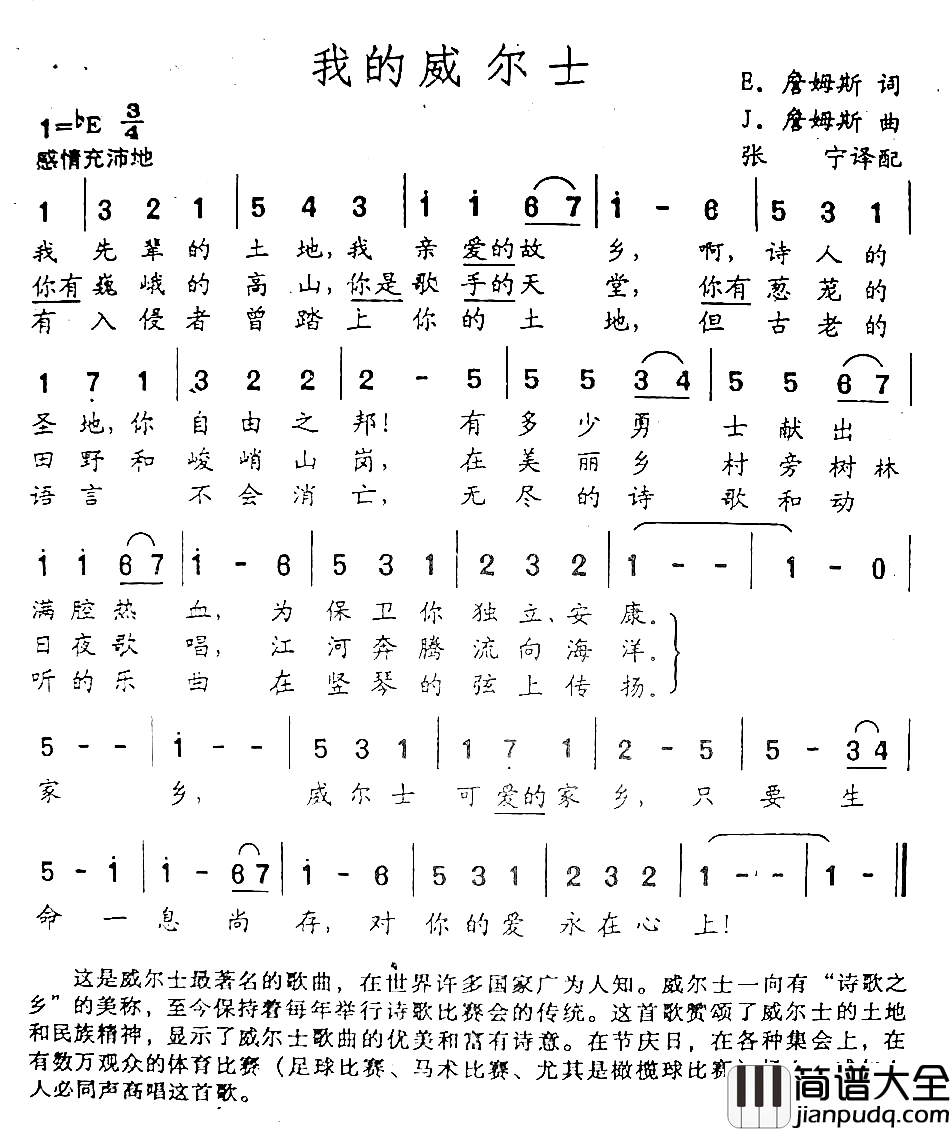 我的威尔士
E. 詹姆斯 词
1=♭E 3/4
J. 詹姆斯 曲
感情充沛地
张 宁译配
1 | 3 2 1 | 5 4 3 | i i 6 7 | i - 6 | 5 3 1 |
我 先辈的 土地,我 亲爱的故 乡, 啊, 诗人的
你有巍峨的高山,你是歌手的天 堂, 你有葱茏的
有 入侵者曾踏上你的土 地, 但古老的
1 7 1 | 3 2 2 | 2 - 5 | 5 5 3 4 | 5 5 6 7 |
圣地,你自由之邦! 有多少勇 士献出
田野和峻峭山岗, 在美丽乡 村旁树林
语言 不会消亡, 无尽的诗 歌和动
i i 6 7 | i - 6 | 5 3 1 | 2 3 2 | 1 - - | 1 - 0
满腔热 血, 为保卫你独立、安康。
日夜歌 唱, 江河奔腾流向海洋。
听的乐 曲 在竖琴的弦上传扬。
5 - - | i - - | 5 3 1 | 1 7 1 | 2 - 5 | 5 - 3 4 |
家 乡, 威尔士可爱的家乡,只要生
5 - i | i - 6 7 | i - 6 | 5 3 1 | 2 3 2 | 1 - - | 1 - ‖
命一息尚 存, 对你的爱永在心上!
这是威尔士最著名的歌曲，在世界许多国家广为人知。威尔士一向有“诗歌之
乡”的美称，至今保持着每年举行诗歌比赛会的传统。这首歌赞颂了威尔士的土地
和民族精神，显示了威尔士歌曲的优美和富有诗意。在节庆日，在各种集会上，在
有数万观众的体育比赛（足球比赛、马术比赛、尤其是橄榄球比赛
人必同声高唱这首歌。
简谱大全
jianpudq.com